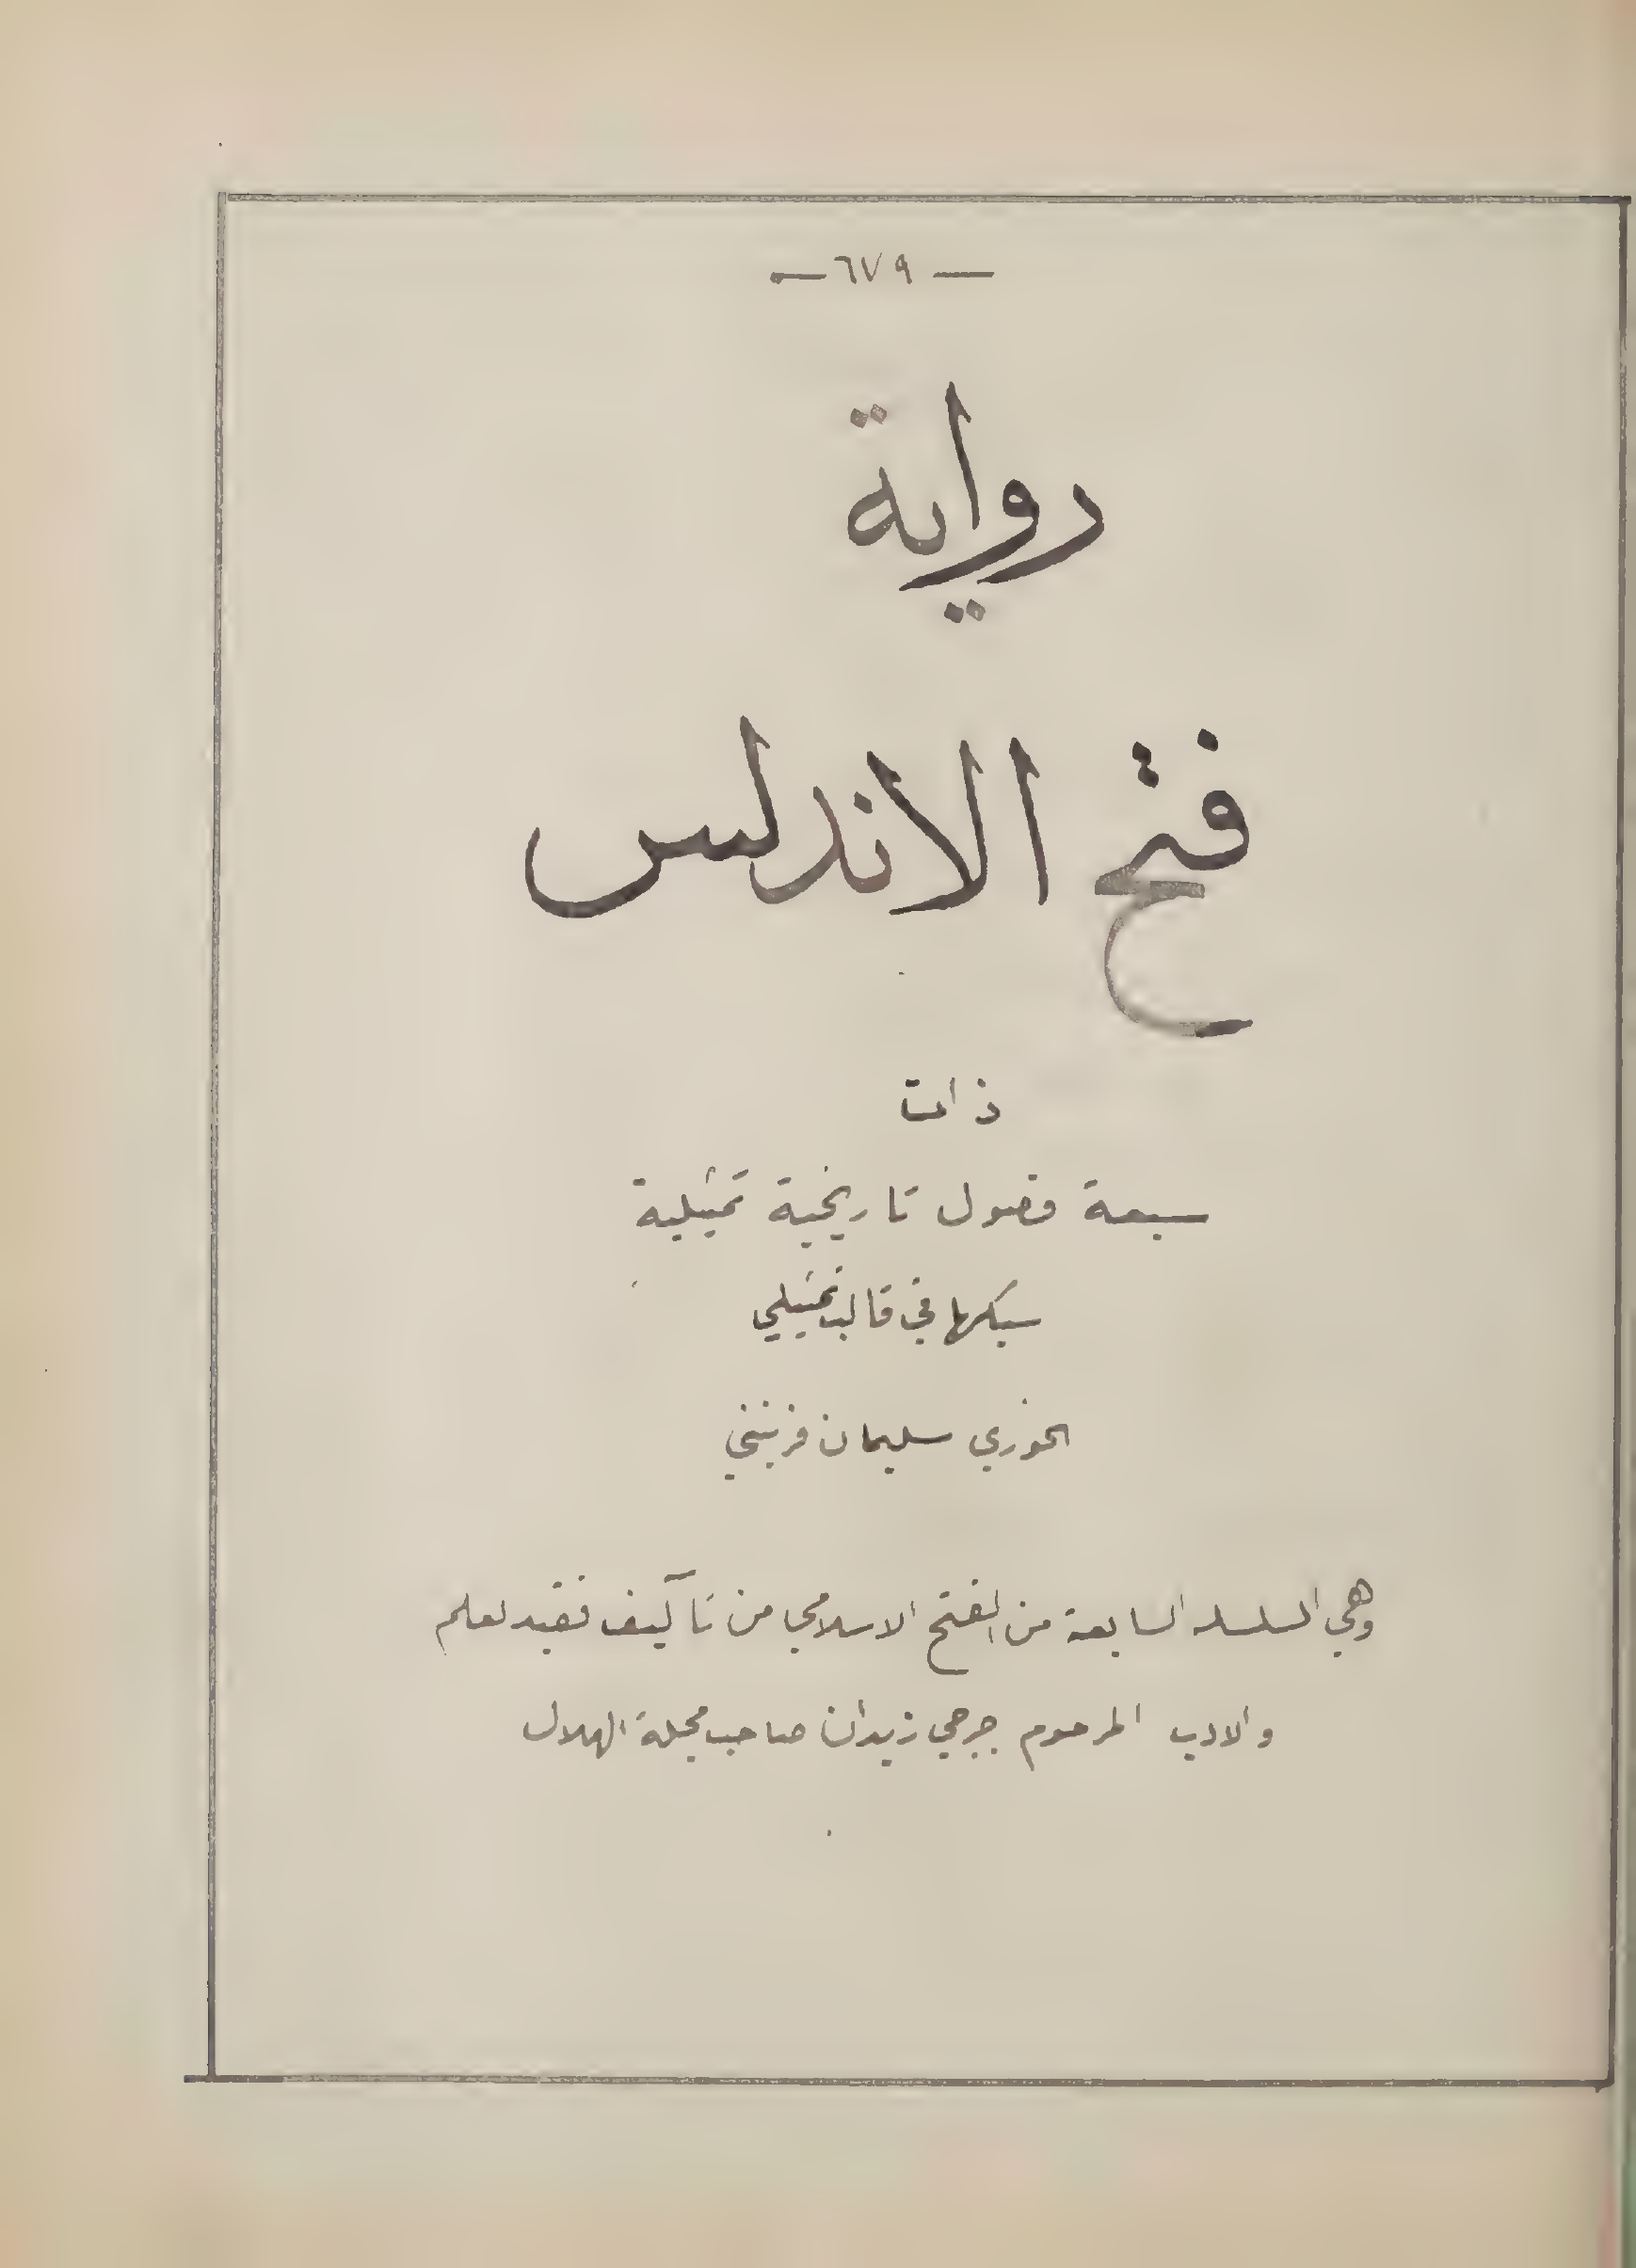 — ٦٧٩ —
رواية
فتح الاندلس
ذات
سبعة فصول تاريخية تمثيلية
سبكها في قالب تمثيلي
الخوري سليمان
وهي السلسله السابعة من الفتح الاسلامي من تآليف فقيد لعلم
والادب المرحوم جرجي زيدان صاحب مجلة الهلال